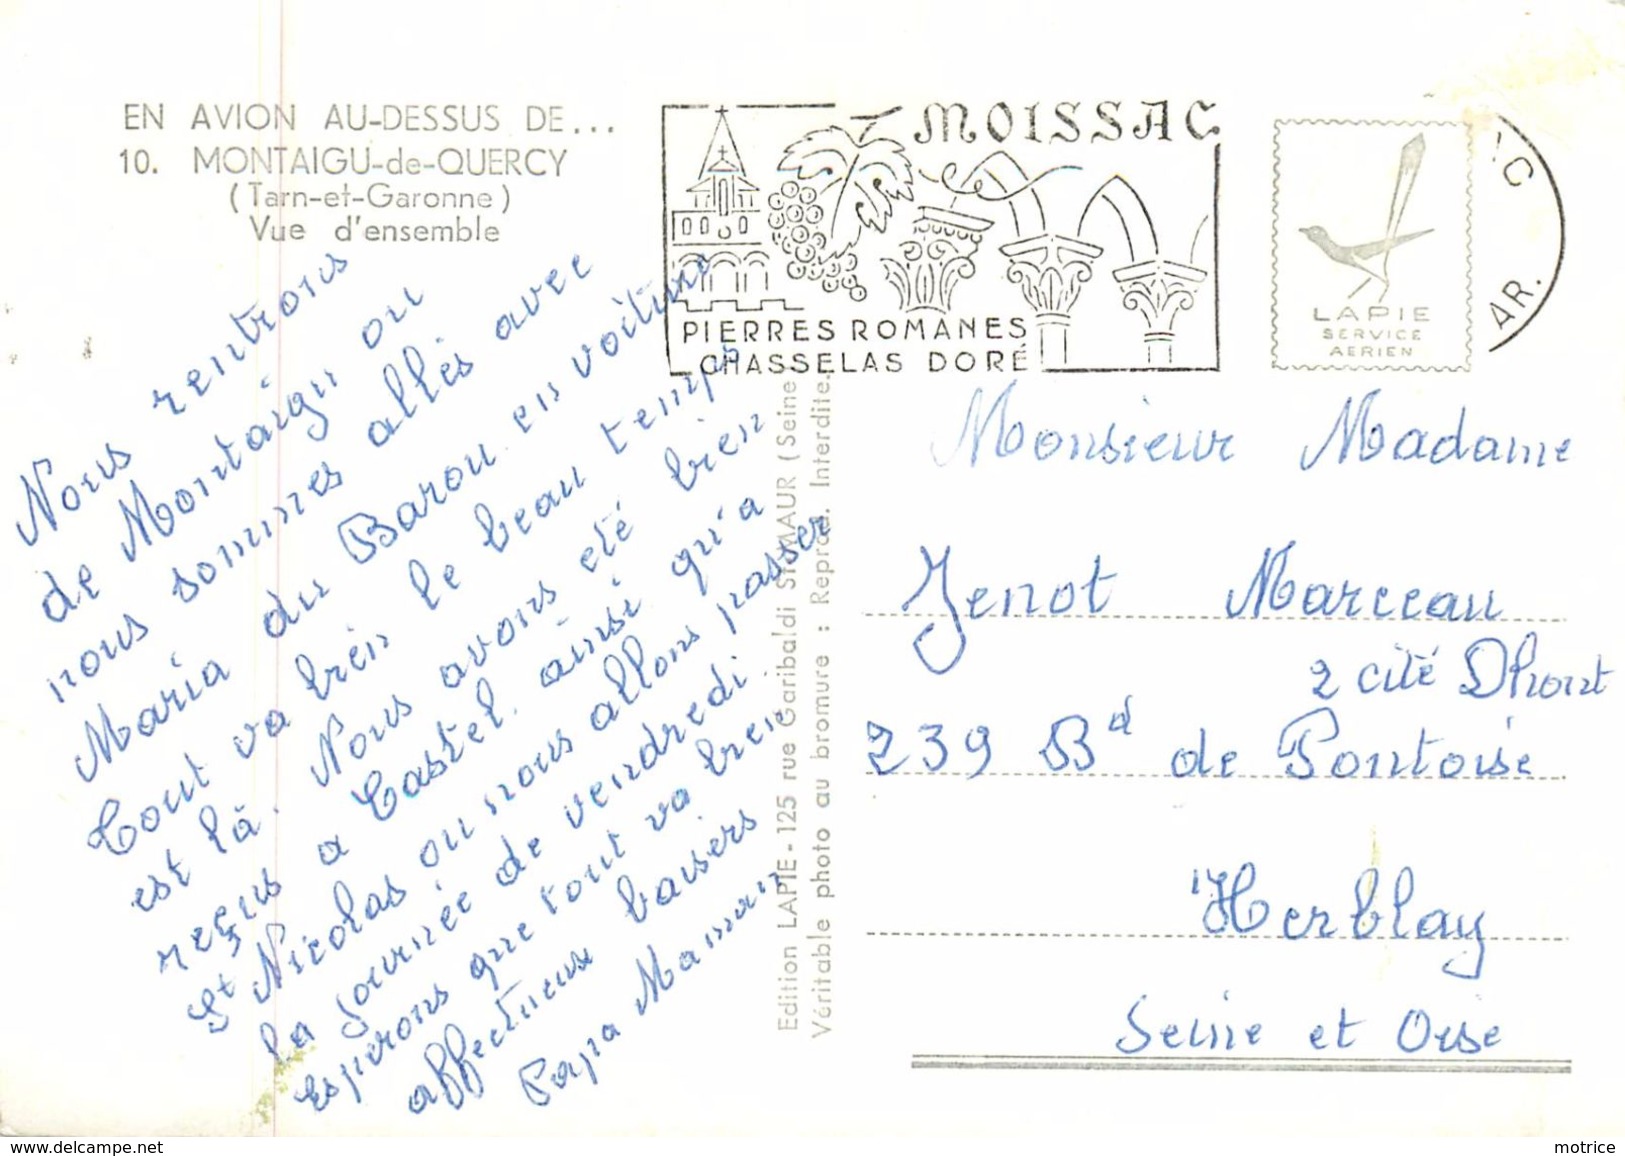 EN AVION AU-DESSUS DE...
10. MONTAIGU-de-QUERCY
(Tarn-et-Garonne)
Vue d'ensemble
MOISSAC
PIERRES ROMANES
CHASSELAS DORÉ
LAPIE
SERVICE
AERIEN
AR.
Nous rentrons
de Montaigu ou
nous sommes allés avec
Maria du Barou en voiture
Tout va bien le beau temps
est là. Nous avons été bien
reçus a Castel ainsi qu'a
St Nicolas ou nous allons passer
la journée de vendredi
Espérons que tout va bien
affectueux baisers
Papa Maman
Edition LAPIE - 125 rue Garibaldi St-MAUR (Seine)
Véritable photo au bromure : Reprod. Interdite.
Monsieur Madame
Jenot Marceau
2 cité Dhont
239 Bd de Pontoise
Herblay
Seine et Oise
motrice